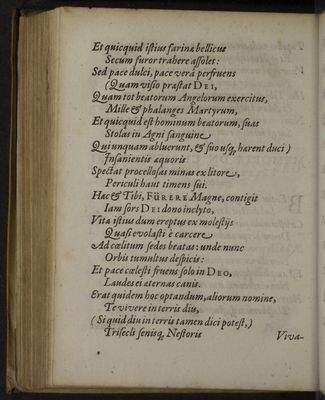 Et quicquid istius farinæ bellicus
Secum furor trahere assolet:
Sed pace dulci, pace verâ perfruens
(Quam visio præstat DEI,
Quam tot beatorum Angelorum exercitus,
Mille & phalanges Martyrum,
Et quicquid est hominum beatorum, suas
Stolas in Agni sanguine
Qui unquam abluerunt, & suo usq; hærent duci)
Insanientis æquoris
Spectat procellosas minas ex litore,
Periculi haut timens sui.
Hac & Tibi, FÜRERE Magne, contigit
Iam sors DEI dono inclyto,
Vita istius dum ereptus ex molestijs
Quasi evolasti è carcere
Ad cœlitum sedes beatas: unde nunc
Orbis tumultus despicis:
Et pace cœlesti fruens solo in DEO,
Laudes ei æternas canis.
Erat quidem hoc optandum, aliorum nomine,
Te vivere in terris diu,
(Si quid diu in terris tamen dici potest,)
Trisecli senisq; Nestoris
Viva-